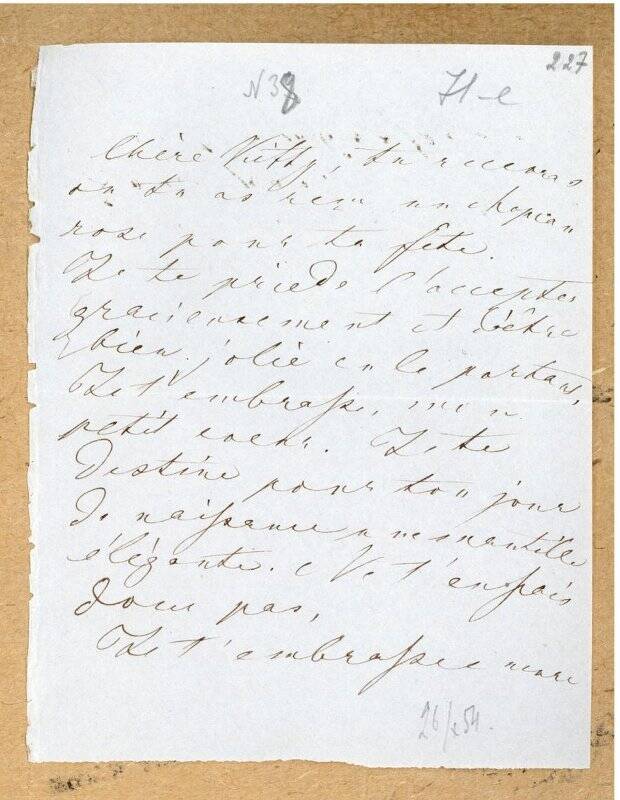 227
N 38
Chère Kitty, tu recevras
ou tu as reçu un chapeau
rose pour ta fête.
Je te prie de l'accepter
gracieusement et d'être
bien jolie en le portant.
Je t'embrasse, mon
petit coeur. Je te
destine pour ton jour
de naissance une mantille
élégante. Ne t'en fais
donc pas,
Je t'embrasse encore